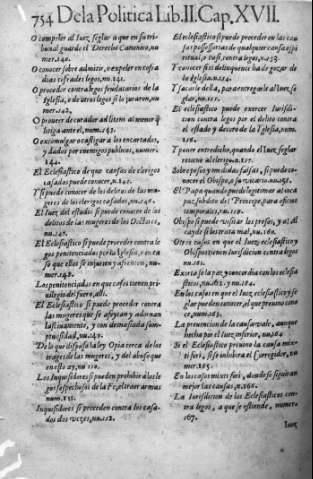 754 De la Politica Lib. II. Cap. XVII.
O compeler al Iuez seglar a que en su tri-
bunal guarde el Derecho Canonico, nu
mer. 140.
O conocer sobre admitir, o expeler en casa
dias refriados legos, nu. 141.
O proceder contra legos feudatarios de la
Iglesia, o de otros legos si lo juraron, nu
mer. 142.
O proueer de curador ad litem al menor q̃
litiga ante el, num. 143.
O exòmulgar o castigar a los encartados,
y dados por enemigos publicos, numer.
144.
El Eclesiastico de que causas de clerigos
casados puede conocer, n. 145.
Y si puede conocer de los delitos de las mu-
geres de los clerigos casados, nu. 146.
El Iuez del estudio si puede conocer de los
delitos de las mugeres de los Doctores,
nu. 147.
El Eclesiastico si puede proceder contra le
gos penitenciados por la Iglesia, en ca
so que ellos se injurien y afrenten, nu-
mer. 148.
Los penitenciados en que casos tienen pri-
uilegio del fuero, ibi.
El Eclesiastico si puede proceder contra
las mugeres que se afeytan y adornan
lasciuamente, y con demasiada sum-
ptuosidad, nu. 149.
De lo que dispuso la ley Opia cerca de los
trages de las mugeres, y del abuso que
en esto ay, nu. 150.
Los Inquisidores si pueden prohibir a los le
gos sospechosos de la Fè, el traer armas
num. 151.
Inquisidores si proceden contra los casa-
dos dos vezes, nu. 152.
El eclesiastico si puede proceder en las cau
sas possessorias de qualquier causa espi
ritual, y Fe si, contra legos, nu. 153.
Y correr si es delinquente ha de gozar de
la Iglesia, n. 154.
Y sacarle della, para entregarle al Iuez se
glar, nu. 155.
El eclesiastico puede exercer Iurisdi-
cion contra legos por el delito contra
el estado y decoro de la Iglesia, num.
156.
Y poner entredicho, quando el Iuez seglar
retiene al clerigo, n. 157.
Sobre pesos y medidas falsas, si puede co-
nocer el Obispo, o su vicario, nu. 158.
El Papa quando puede legitimar al inca
paz, subdito de Principe, para oficios
temporales, nu. 159.
Obispo si puede visitar los presos, y al al
cayde si los trata mal, nu. 160.
Otros casos en que el Iuez eclesiastico y
Obispo tienen Iurisdicion contra legos
nu. 161.
Exorta se la paz, y concordia con los eclesia
sticos, nu. 162. y nu. 164.
En los casos en que el Iuez eclesiastico y se
glar pueden conocer, el que preuiene cono
ce, num. 163.
La preuencion de la causa vale, aunque
hecha por el Iuez inferior, nu. 164.
Si el Eclesiastico preuino la causa mix-
ti fori, si se inhibira el Corregidor, nu
mer. 165.
En los casos mixti fori, donde se siguiran
mejor las causas, n. 166.
La Iurisdicion de los Eclesiasticos con
tra legos, a que se estiende, numer.
167.
Iuez